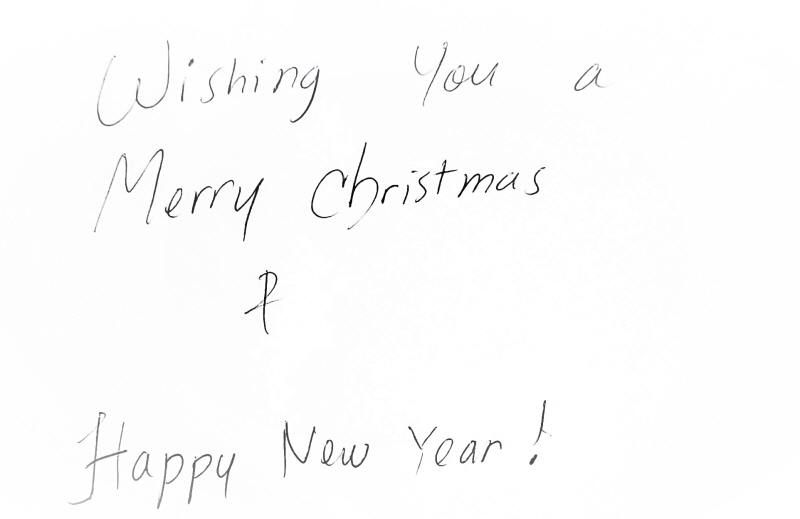 Wishing You a
Merry Christmas
&
Happy New Year!